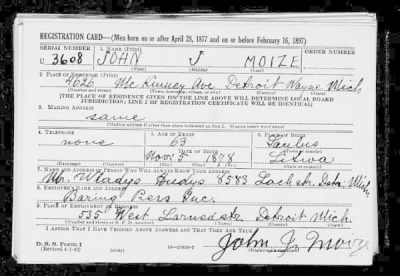 REGISTRATION CARD—(Men born on or after April 28, 1877 and on or before February 16, 1897)
SERIAL NUMBER 1. NAME (Print) ORDER NUMBER
U 3608 JOHN J MOIZE
(First) (Middle) (Last)
2. PLACE OF RESIDENCE (Print)
4626 McKinney Ave Detroit Wayne Mich
(Number and street) (Town, township, village, or city) (County) (State)
[THE PLACE OF RESIDENCE GIVEN ON THE LINE ABOVE WILL DETERMINE LOCAL BOARD
JURISDICTION; LINE 2 OF REGISTRATION CERTIFICATE WILL BE IDENTICAL]
3. MAILING ADDRESS
same
[Mailing address if other than place indicated on line 2. If same insert word same]
4. TELEPHONE 5. AGE IN YEARS 6. PLACE OF BIRTH
none 63
DATE OF BIRTH
Nov. 5 1878 Litwa
(Exchange) (Number) (Mo.) (Day) (Yr.) (State or country)
7. NAME AND ADDRESS OF PERSON WHO WILL ALWAYS KNOW YOUR ADDRESS
Mr. Wladys 8583 Det. Mich
8. EMPLOYER'S NAME AND ADDRESS
Baring Inc.
9. PLACE OF EMPLOYMENT OR BUSINESS
535 West Larned st. Detroit Mich.
(Number and street or R. F. D. number) (Town) (County) (State)
I AFFIRM THAT I HAVE VERIFIED ABOVE ANSWERS AND THAT THEY ARE TRUE.
D. S. S. Form 1
(Revised 4-1-42) (over)
John J. Moize